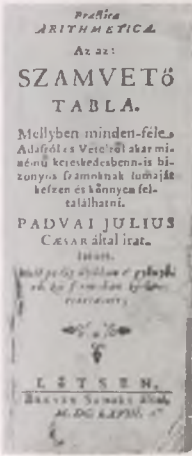 Practica
ARITHMETICA.
Az az:
SZAMVETŐ
TABLA.
Mellyben minden-féle
Adásról és Vételről akar mi-
némű kereskedesbenn-is bi-
zonyos szamoknak sumáját
keszen és könnyen fel-
talalhatni.
PADVAI JULIUS
CÆSAR által irat.
LŐTSEN,